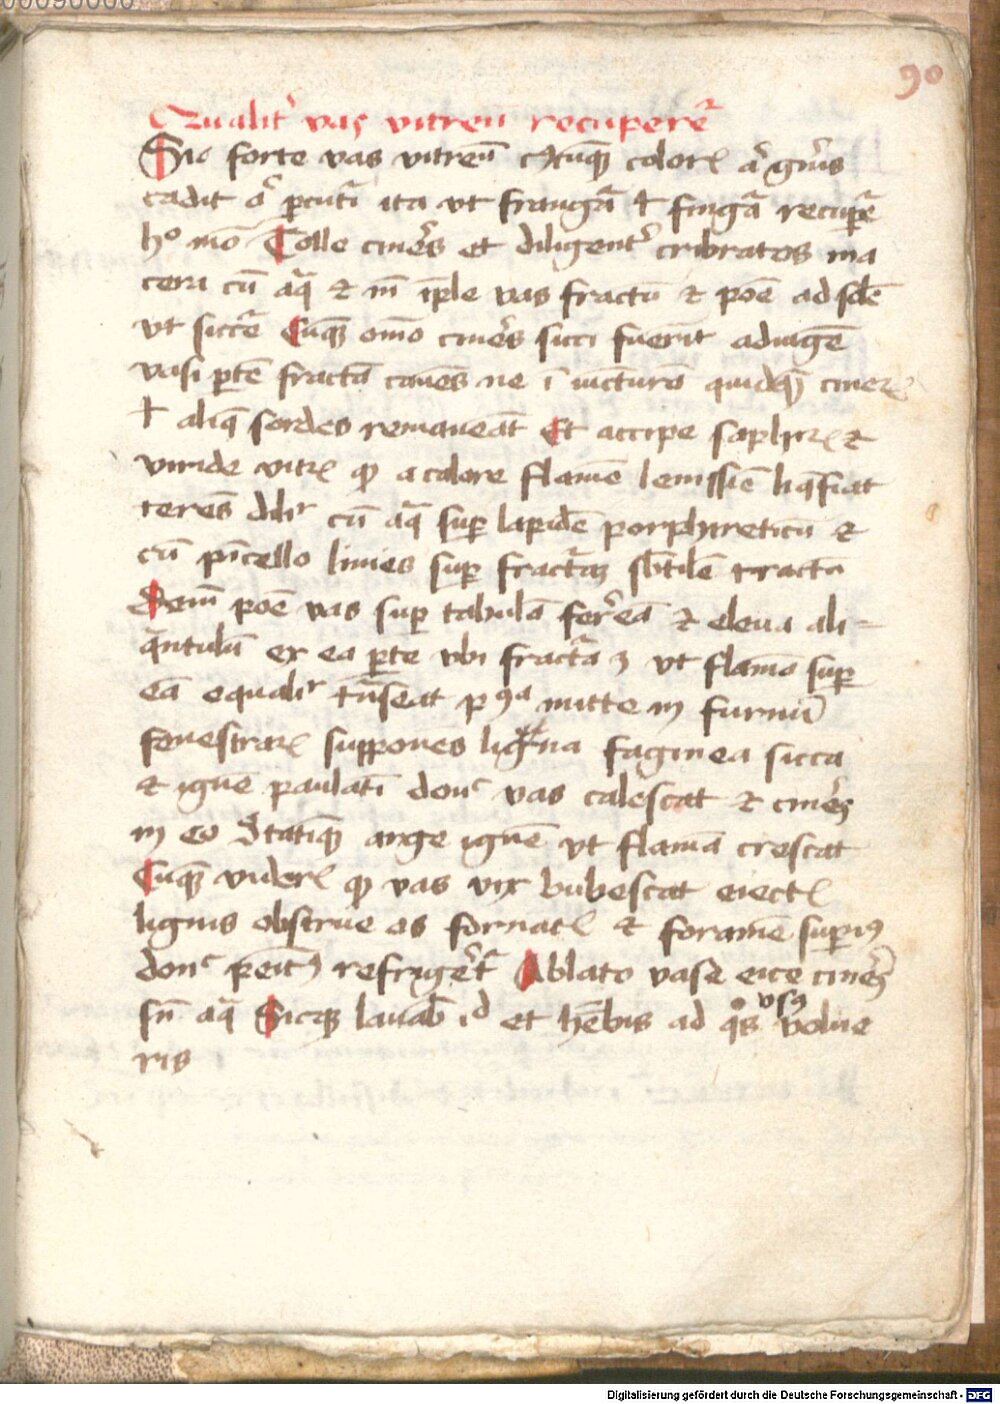 90
Qualit͛ vas vitreū recuperet͛
Si forte vas vitreū cuiꝰcūqꝫ coloris a͛ gn͛is
cadit a͛ ꝑcutit͛ ita vt frangat͛ ł fingat͛ recuꝑet͛
hº mō Tolle cineres et diligent͛ cribratos ma
cera cū aq̄ ⁊ in͞ iple vas fractū ⁊ poē ad solē
vt siccet͛ Cūqꝫ om̄o cineres sicci fuerīt adiūgē
vasi ꝑtē fractā cauēs ne ī iūcturā quidqͣ cineris
ł aliq̄ sordes remaneāt Et accipe saphirꝫ ⁊
viride vitrꝫ qď a calore flamē lenissīē liq̄fiat
terēs dilir cū aq̄ suꝑ lapidē porphireticū ⁊
cū pīcello linies suꝑ fractāꝫ subtilē tractū
Dein͞ poē vas suꝑ tabulā ferreā ⁊ eleua ali=
q̄ntulū ex ea ꝑte vbi fractā ꝫ vt flamā suꝑ
eā equalir trāseat p 9ª mitte in furnū
fenestrarꝫ suppones ligna faginea sicca
⁊ ignē paulatī donᶜ vas calescat ⁊ cineres
in eo Statīqꝫ auge ignē vt flamā crescat
Cūqꝫ viderꝫ qď vas vix bubescat eiectꝫ
lignis obstrue os fornacꝫ ⁊ foramē suꝑiꝰ
donᶜ penitꝰ refriget͛ Ablato vase eice cineres
sn͞ aq̄ Sicqꝫ lauab̄ id et hēbis ad qºs vsꝰ volue
ris
Digitalisierung gefördert durch die Deutsche Forschungsgemeinschaft - DFG